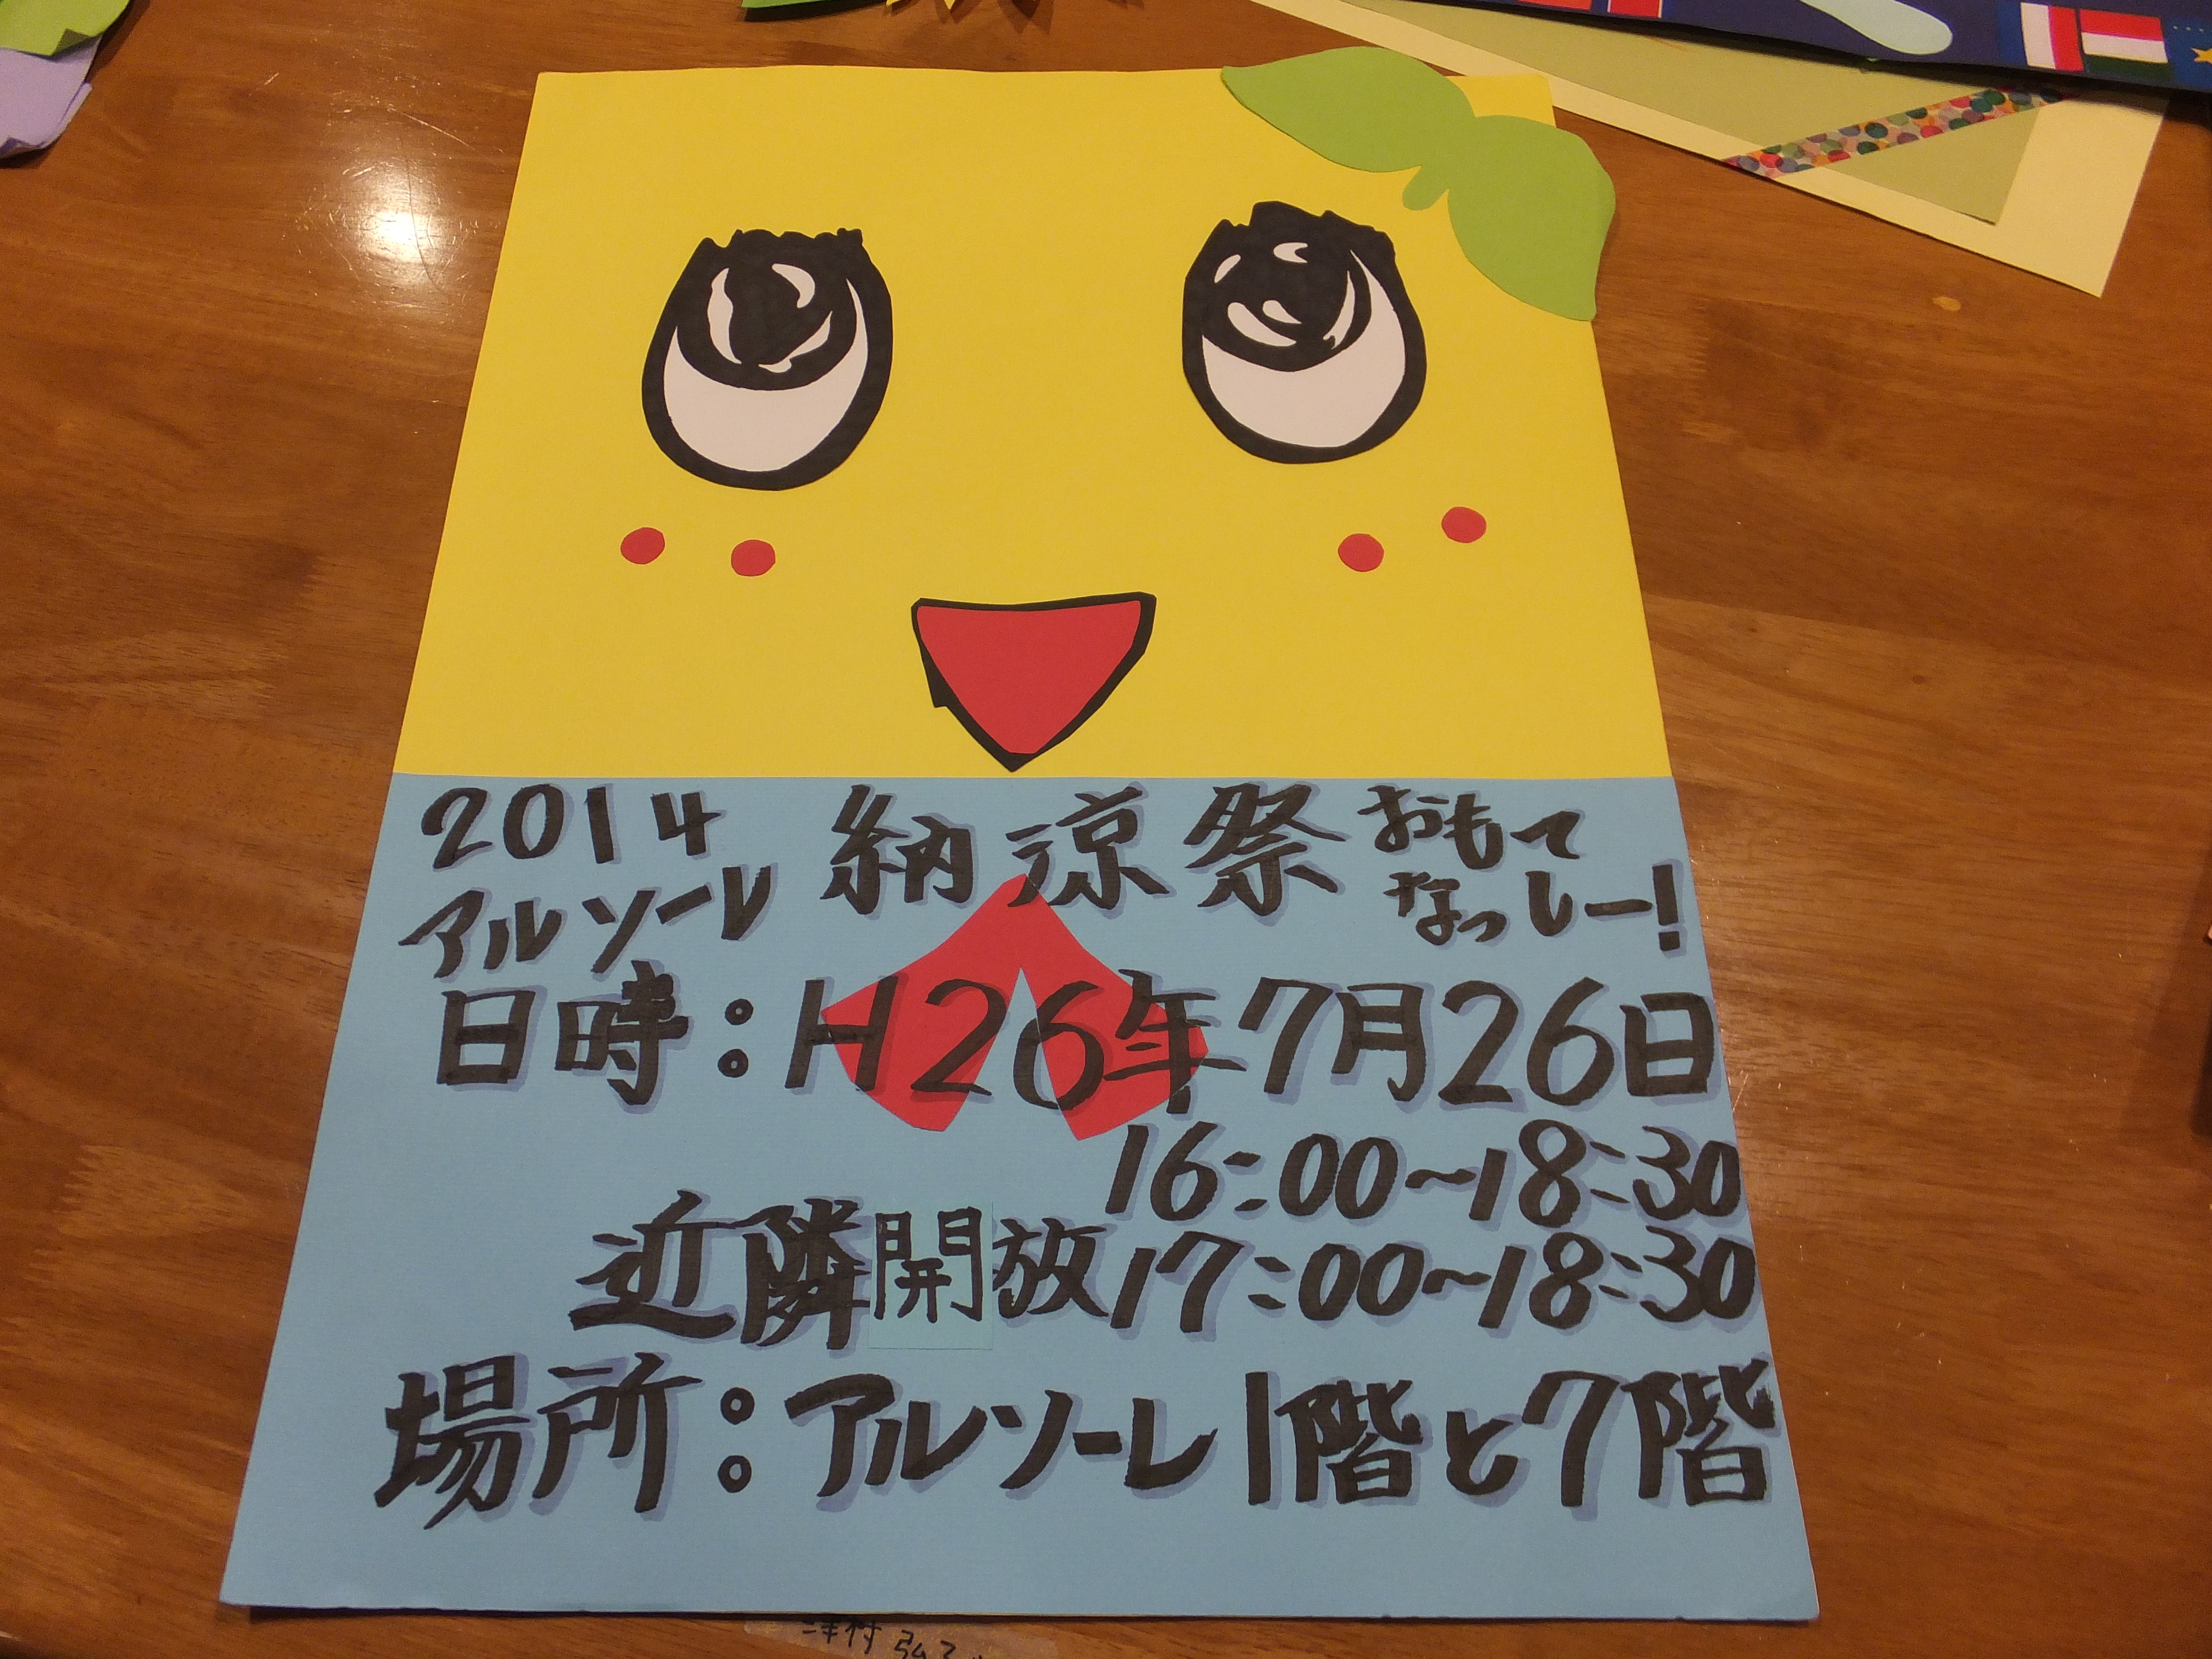 2014 納涼祭 おもて
アルソーレ なっしー!
日時:H26年7月26日
16:00~18:30
近隣開放17:00~18:30
場所:アルソーレ1階と7階